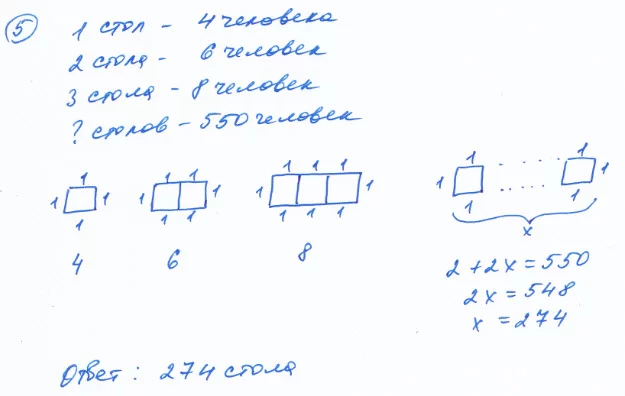 5
1 стол - 4 человека
2 стола - 6 человек
3 стола - 8 человек
? столов - 550 человек
1 1 1 1 1 1 1 1 1 1
1 1 1 1 1 1 1 1
1 1 1 1 1 1 1
x
4 6 8
2 + 2x = 550
2x = 548
x = 274
Ответ: 274 стола